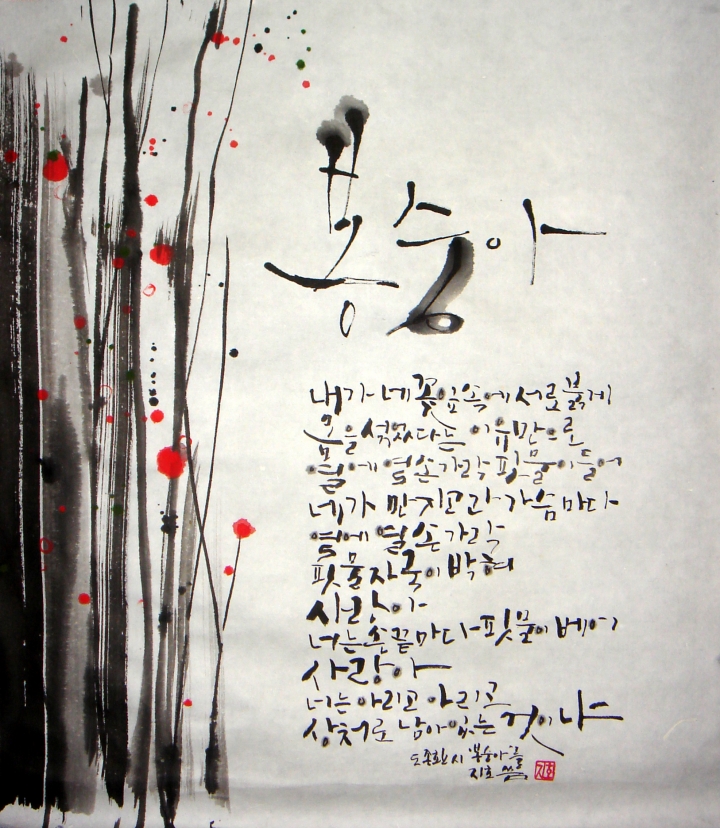 봉숭아
내가 네 꽃잎속에 서로 붉게
몸을 섞었다는 이유만으로
열에 열손가락 핏물이들어
네가 만지고 간 가슴마다
열에 열손가락
핏물자국이 박혀
사랑아
너는 손끝마다 핏물이 베어
사랑아
너는 아리고 아리고
상처로 남아있는 것이냐
도종환 시 '봉숭아'를
지호 씀